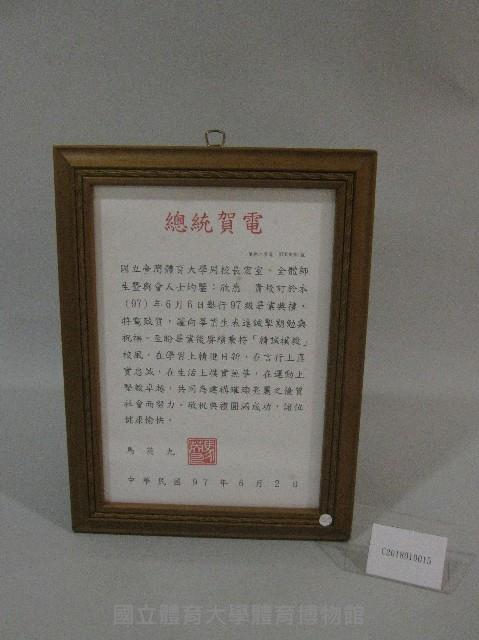 總統賀電
國立臺灣體育大學周校長宏室、全體師
生暨與會人士均鑒：欣悉 貴校訂於本
(97)年6月6日舉行97級畢業典禮，
特電致賀，並向畢業生表達誠摯期勉與
祝福。至盼畢業後賡續秉持「精誠樸毅」
校風，在學習上精進日新，在言行上真
實忠誠，在生活上樸實無華，在運動上
堅毅卓越，共同為建構璀璨亮麗之優質
社會而努力。敬祝典禮圓滿成功，諸位
健康愉快。
馬英九
中華民國97年6月2日
C2018910015
國立體育大學體育博物館